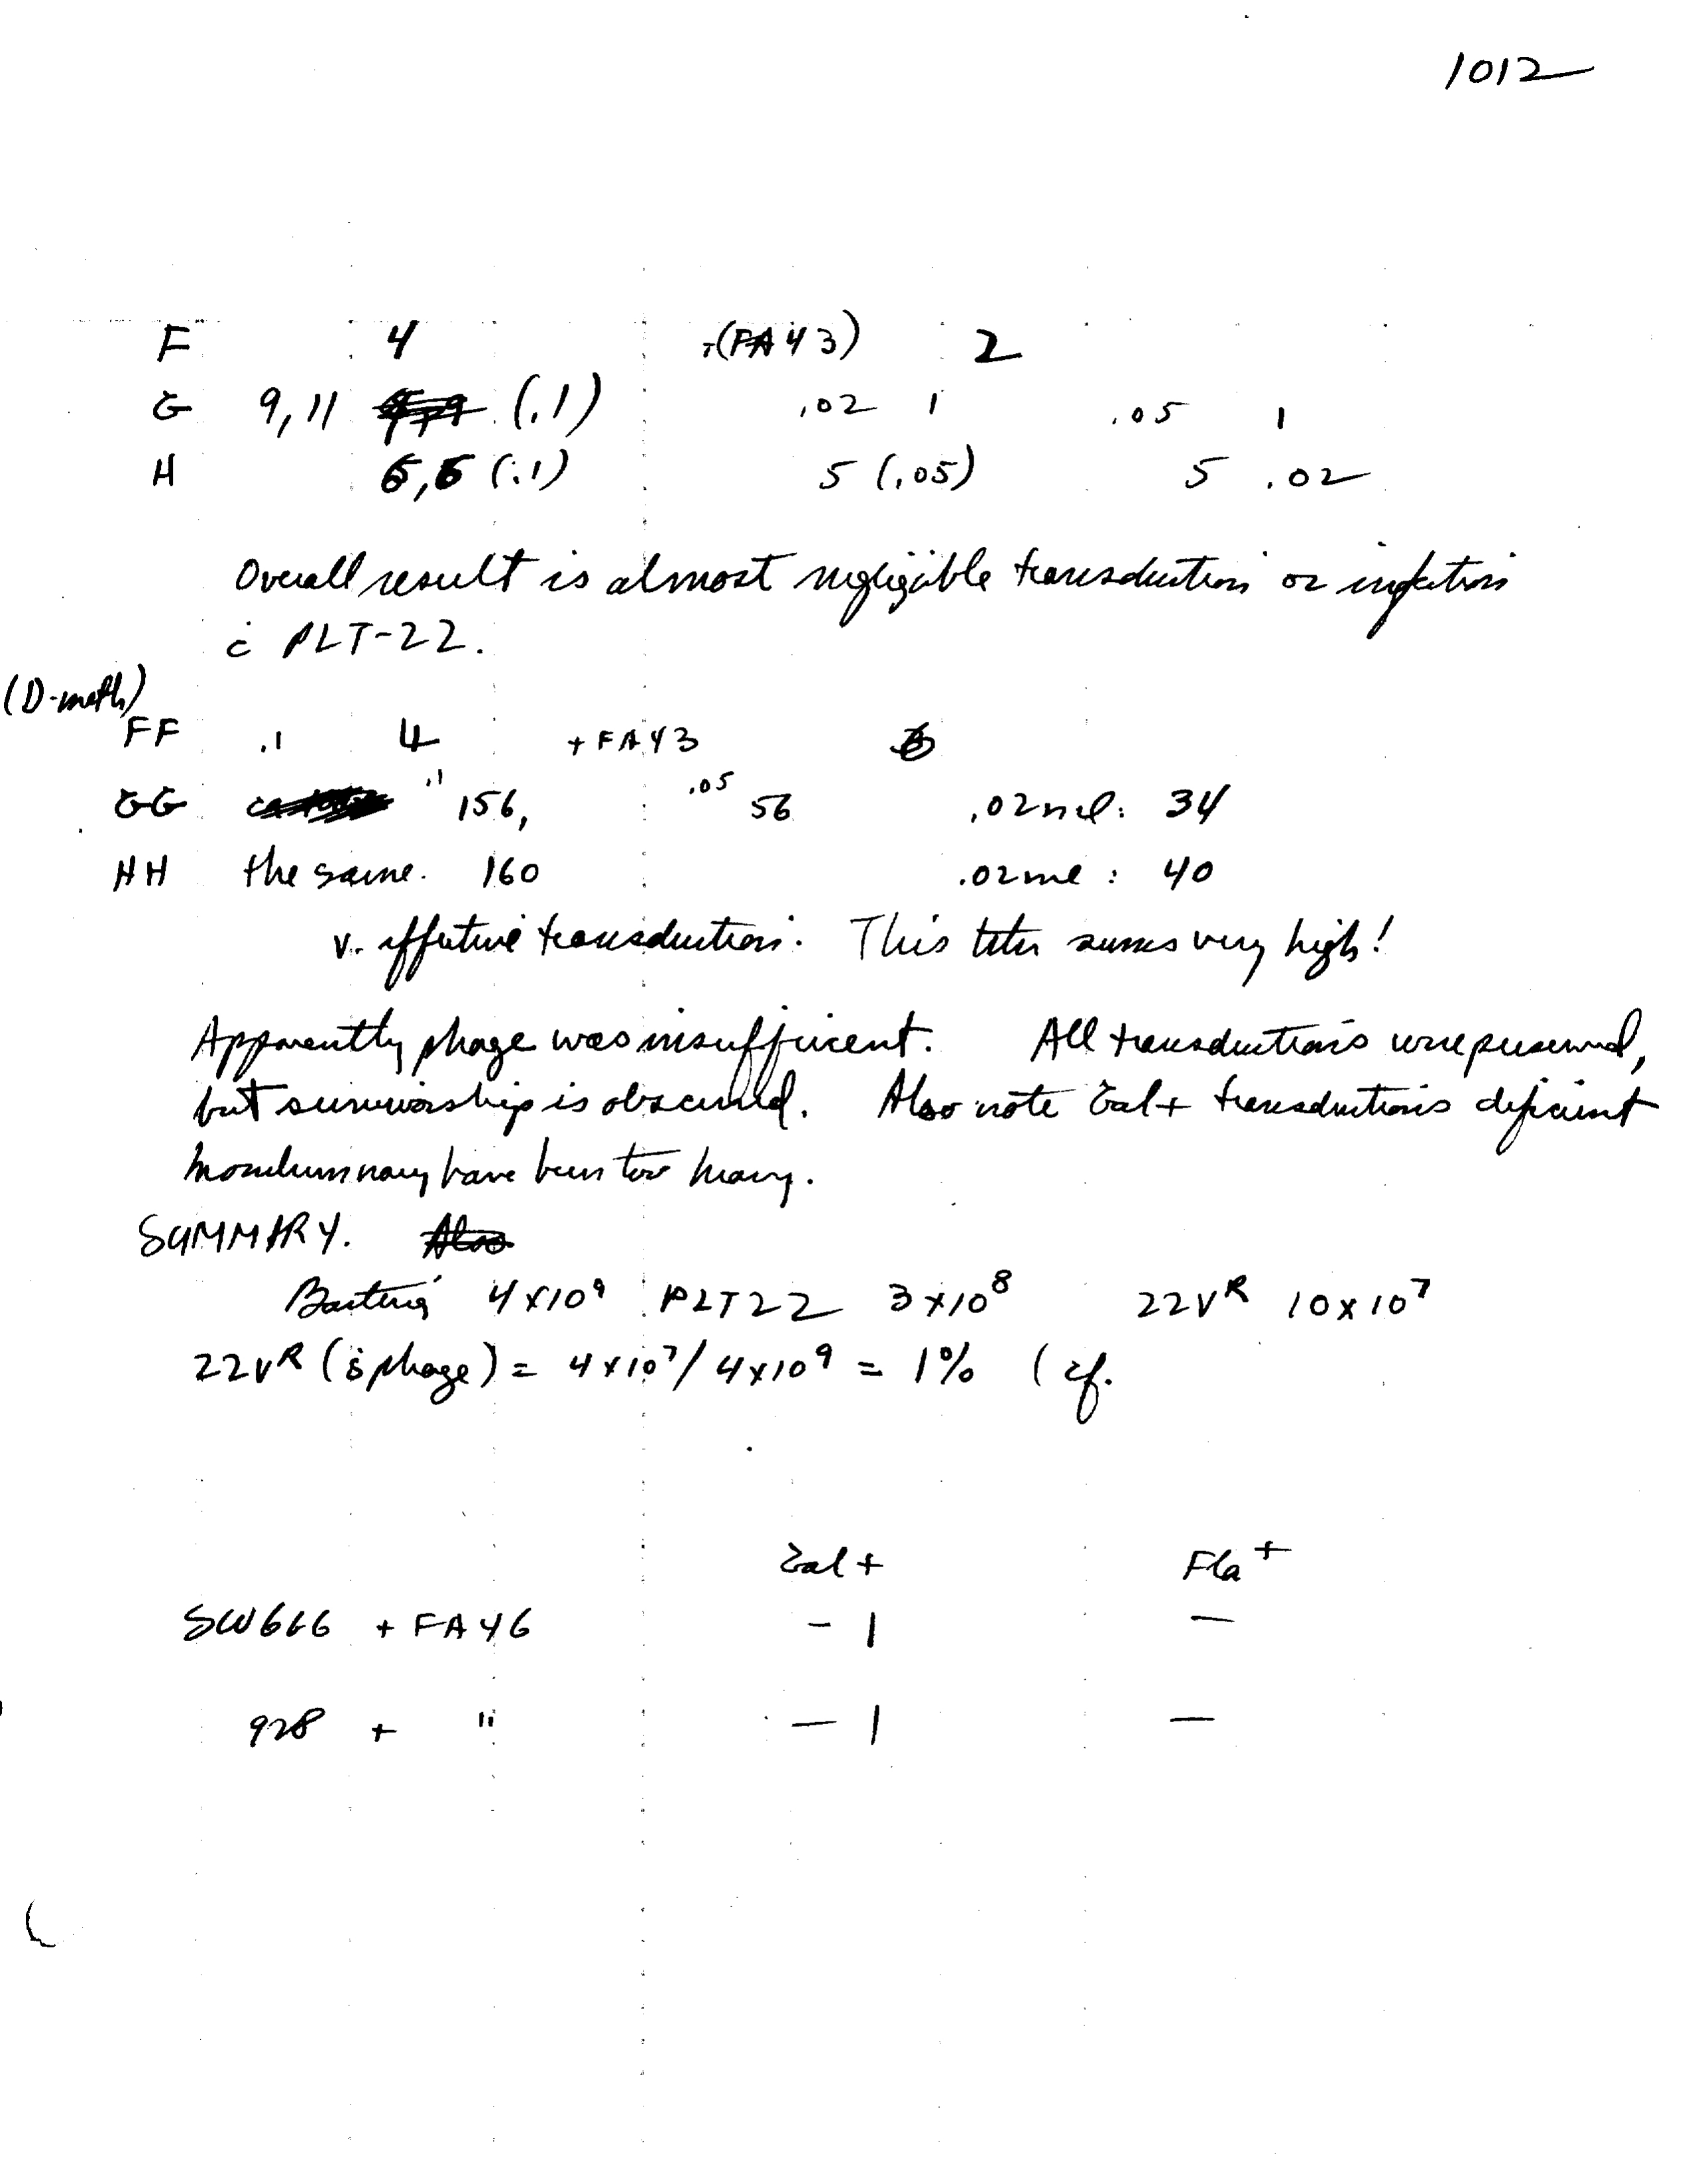 1012
F 4 +(FA43) 2
G 9, 11 (.1) .02 1 .05 1
H 6,6 (.1) 5 (.05) 5 .02
Overall result is almost negligible transduction or infection
c̄ PLT-22.
(D-meth)
FF .1 4 + FA43
GG .1 156, .05 56 .02 ml: 34
HH the same. 160 .02 ml : 40
v. effective transduction. This titer seems very high!
Apparently phage was insufficient. All transductions were preserved,
but survivorship is obscured. Also note Gal+ transductions deficient
Inoculum may have been too heavy.
SUMMARY. Also
Bacteria 4x10⁹ PLT22 3x10⁸ 22Vᴿ 10x10⁷
22Vᴿ (s̄ phage) = 4x10⁷/4x10⁹ = 1% (cf.
Gal+ Fla⁺
SW666 + FA46 - 1 —
928 + " — 1 —